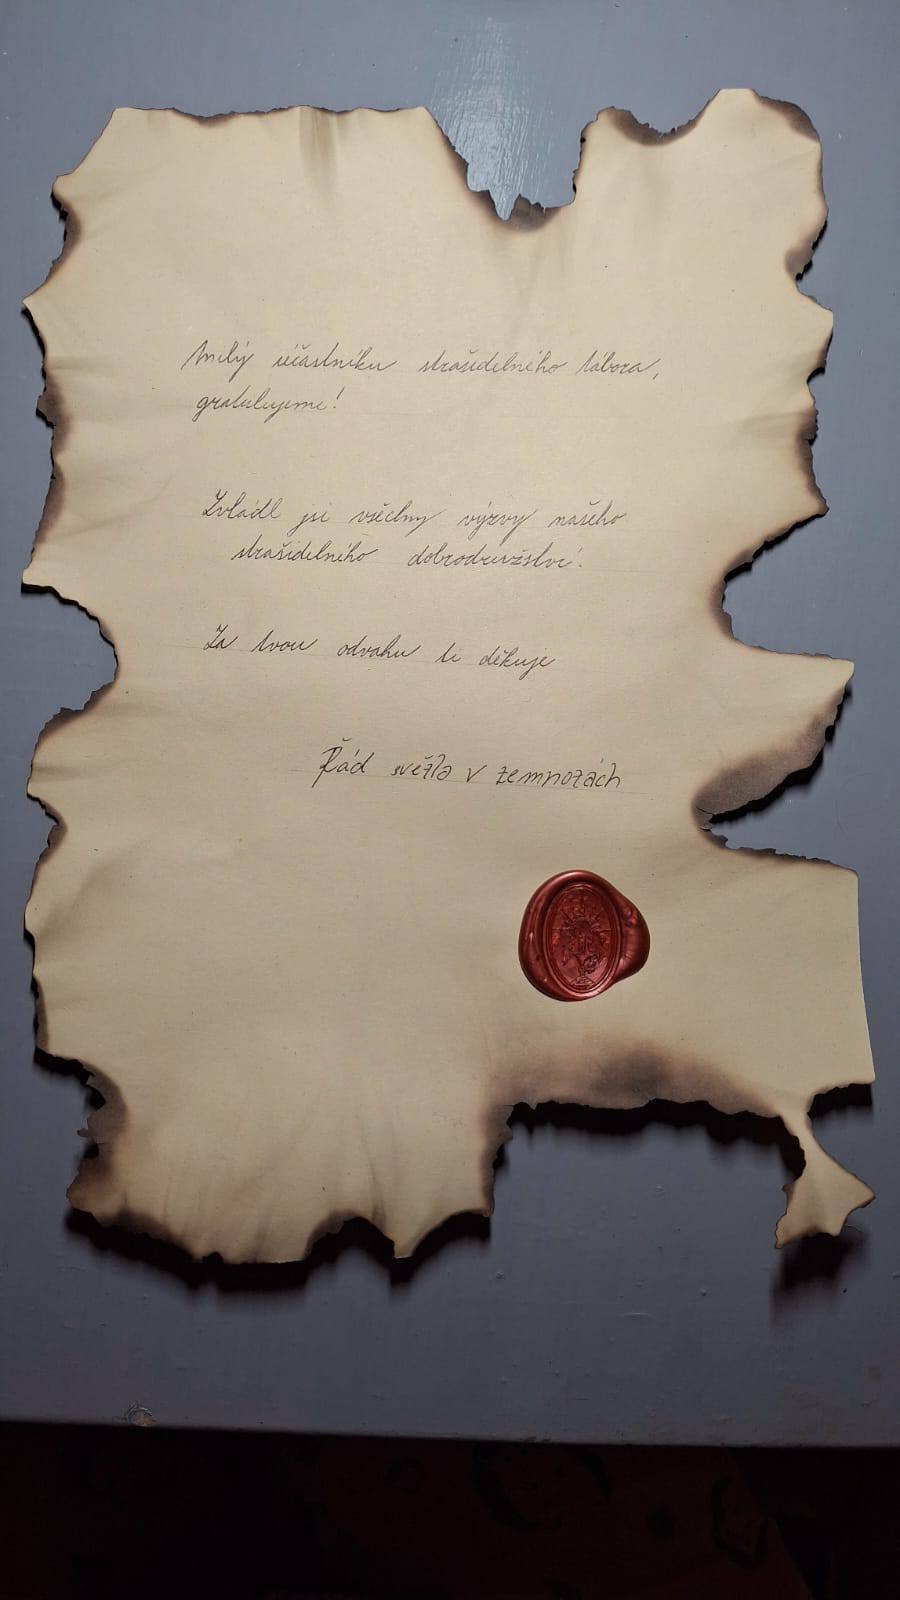 Milý účastníku strašidelného tábora,
gratulujeme!
Zvládl jsi všechny výzvy našeho
strašidelného dobrodružství.
Za tvou odvahu ti děkuje
Řád světla v temnotách